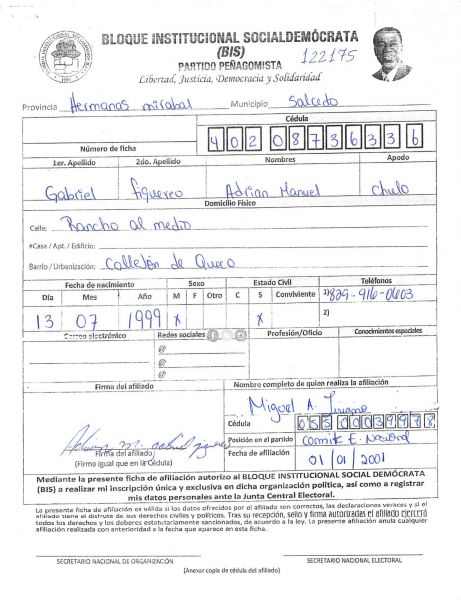 BLOQUE INSTITUCIONAL SOCIALDEMÓCRATA
(BIS)
122175
PARTIDO PEÑAGOMISTA
Libertad, Justicia, Democracia y Solidaridad
Provincia Hermanas mirabal Municipio Salcedo
Número de ficha Cédula
402 0873633 6
1er. Apellido 2do. Apellido Nombres Apodo
Gabriel figuereo Adrian Manuel chulo
Domicilio Físico
Calle: Rancho al medio
#Casa / Apt. / Edificio:
Barrio / Urbanización: Callejón de Queco
Fecha de nacimiento Sexo Estado Civil Teléfonos
Día Mes Año M F Otro C S Conviviente 1) 829-916-0603
13 07 1999 x x 2)
Correo electrónico Redes sociales Profesión/Oficio Conocimientos especiales
@
@
@
Firma del afiliado Nombre completo de quien realiza la afiliación
Miguel A.
Cédula
Adrian m. gabriel
Posición en el partido Comite E. Nacional
Firma del afiliado
(Firme igual que en la Cédula)
Fecha de afiliación 01/01/2001
Mediante la presente ficha de afiliación autorizo al BLOQUE INSTITUCIONAL SOCIAL DEMÓCRATA
(BIS) a realizar mi inscripción única y exclusiva en dicha organización política, así como a registrar
mis datos personales ante la Junta Central Electoral.
La presente ficha de afiliación es válida si los datos ofrecidos por el afiliado son correctos, las declaraciones veraces y si el
afiliado tiene el disfrute de sus derechos civiles y políticos. Tras su recepción, sello y firma autorizadas el afiliado ejercerá
todos los derechos y los deberes estatutariamente sancionados, de acuerdo a la ley. La presente afiliación anula cualquier
afiliación realizada con anterioridad a la fecha que aparece en esta ficha.
SECRETARIO NACIONAL DE ORGANIZACIÓN SECRETARIO NACIONAL ELECTORAL
(Anexar copia de cédula del afiliado)